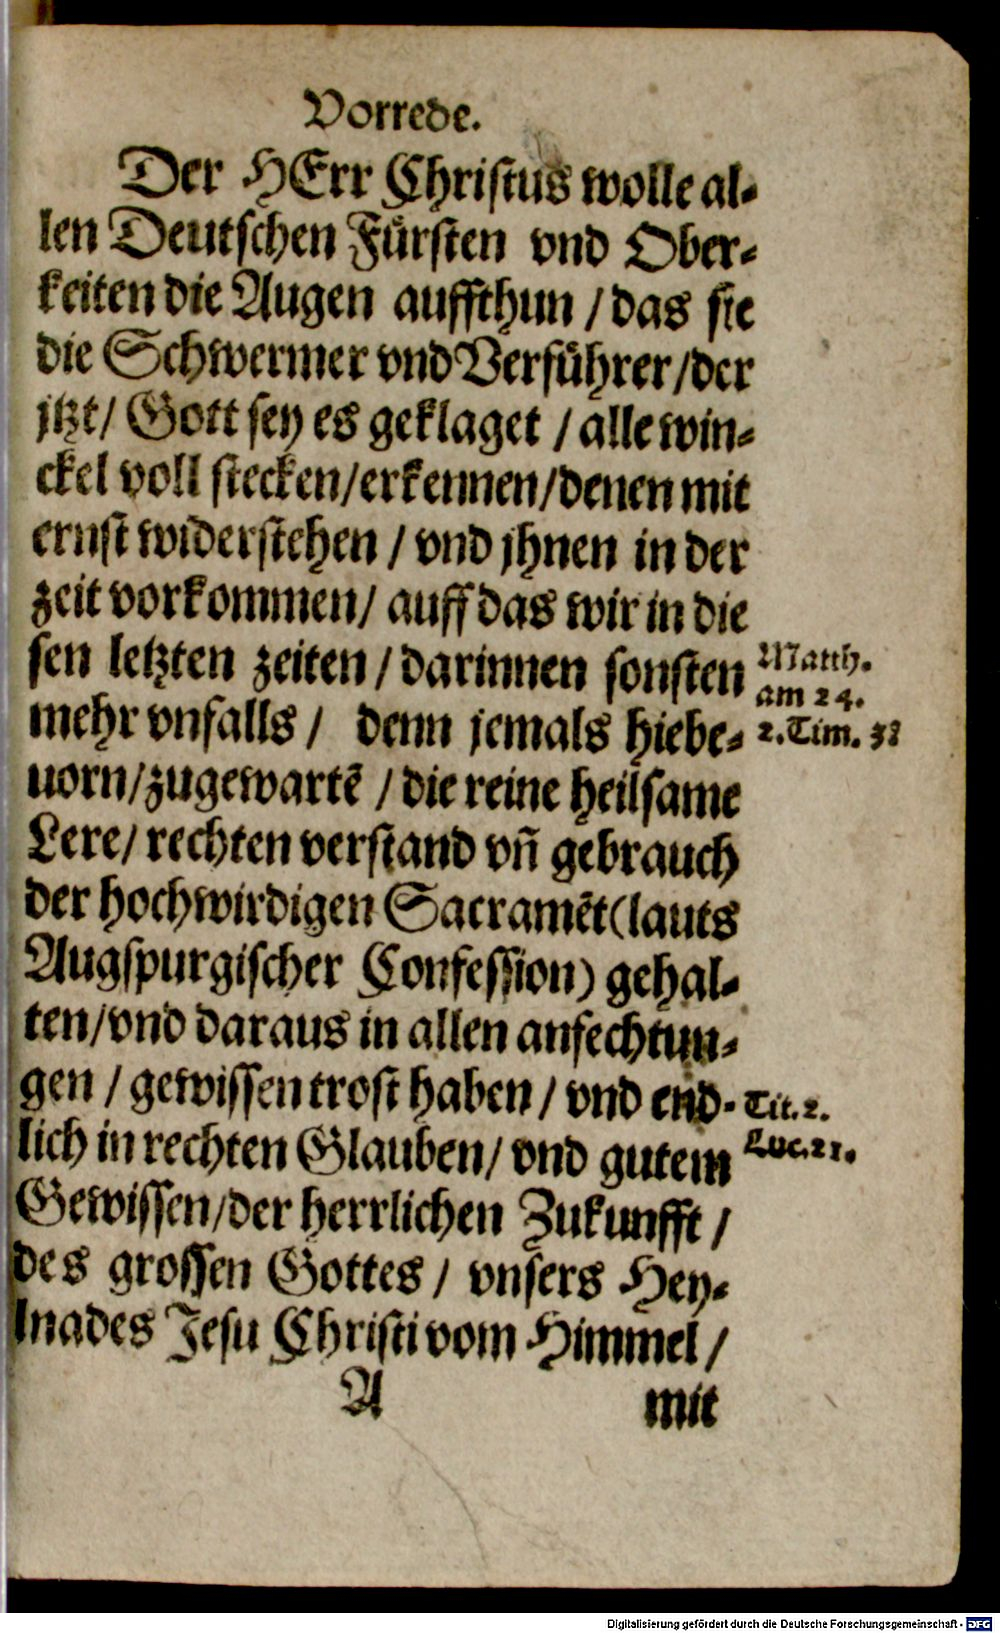 Vorrede.
Der HErr Christus wolle al-
len Deutschen Fürsten vnd Ober-
keiten die Augen auffthun / das sie
die Schwermer vnd Verführer / der
jtzt / Gott sey es geklaget / alle win-
ckel voll stecken / erkennen / denen mit
ernst widerstehen / vnd jhnen in der
zeit vorkommen / auff das wir in die
sen letzten zeiten / darinnen sonsten
Matth.
am 24.
mehr vnfalls / denn jemals hiebe-
2. Tim. 3
uorn / zugewartē / die reine heilsame
Lere / rechten verstand vn̄ gebrauch
der hochwirdigen Sacramēt (lauts
Augspurgischer Confession) gehal-
ten / vnd daraus in allen anfechtun-
gen / gewissen trost haben / vnd end-
Tit. 2.
lich in rechten Glauben / vnd gutem
Luc. 21.
Gewissen / der herrlichen Zukunfft /
des grossen Gottes / vnsers Hey-
lnades Jesu Christi vom Himmel /
A mit
Digitalisierung gefördert durch die Deutsche Forschungsgemeinschaft - DFG